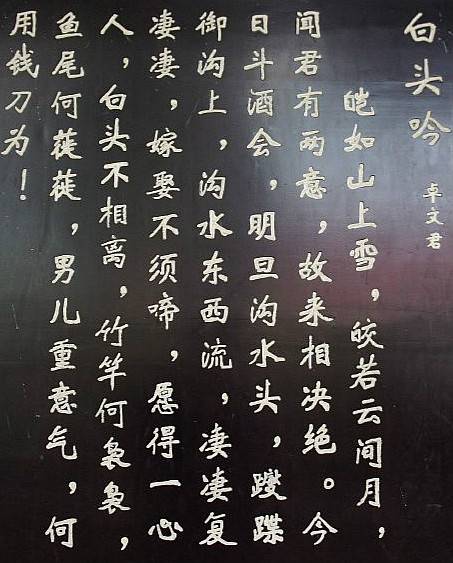 白头吟
卓文君
皑如山上雪，皎若云间月，
闻君有两意，故来相决绝。今
日斗酒会，明旦沟水头，躞蹀
御沟上，沟水东西流，凄凄复
凄凄，嫁娶不须啼，愿得一心
人，白头不相离，竹竿何袅袅，
鱼尾何蓰蓰，男儿重意气，何
用钱刀为！